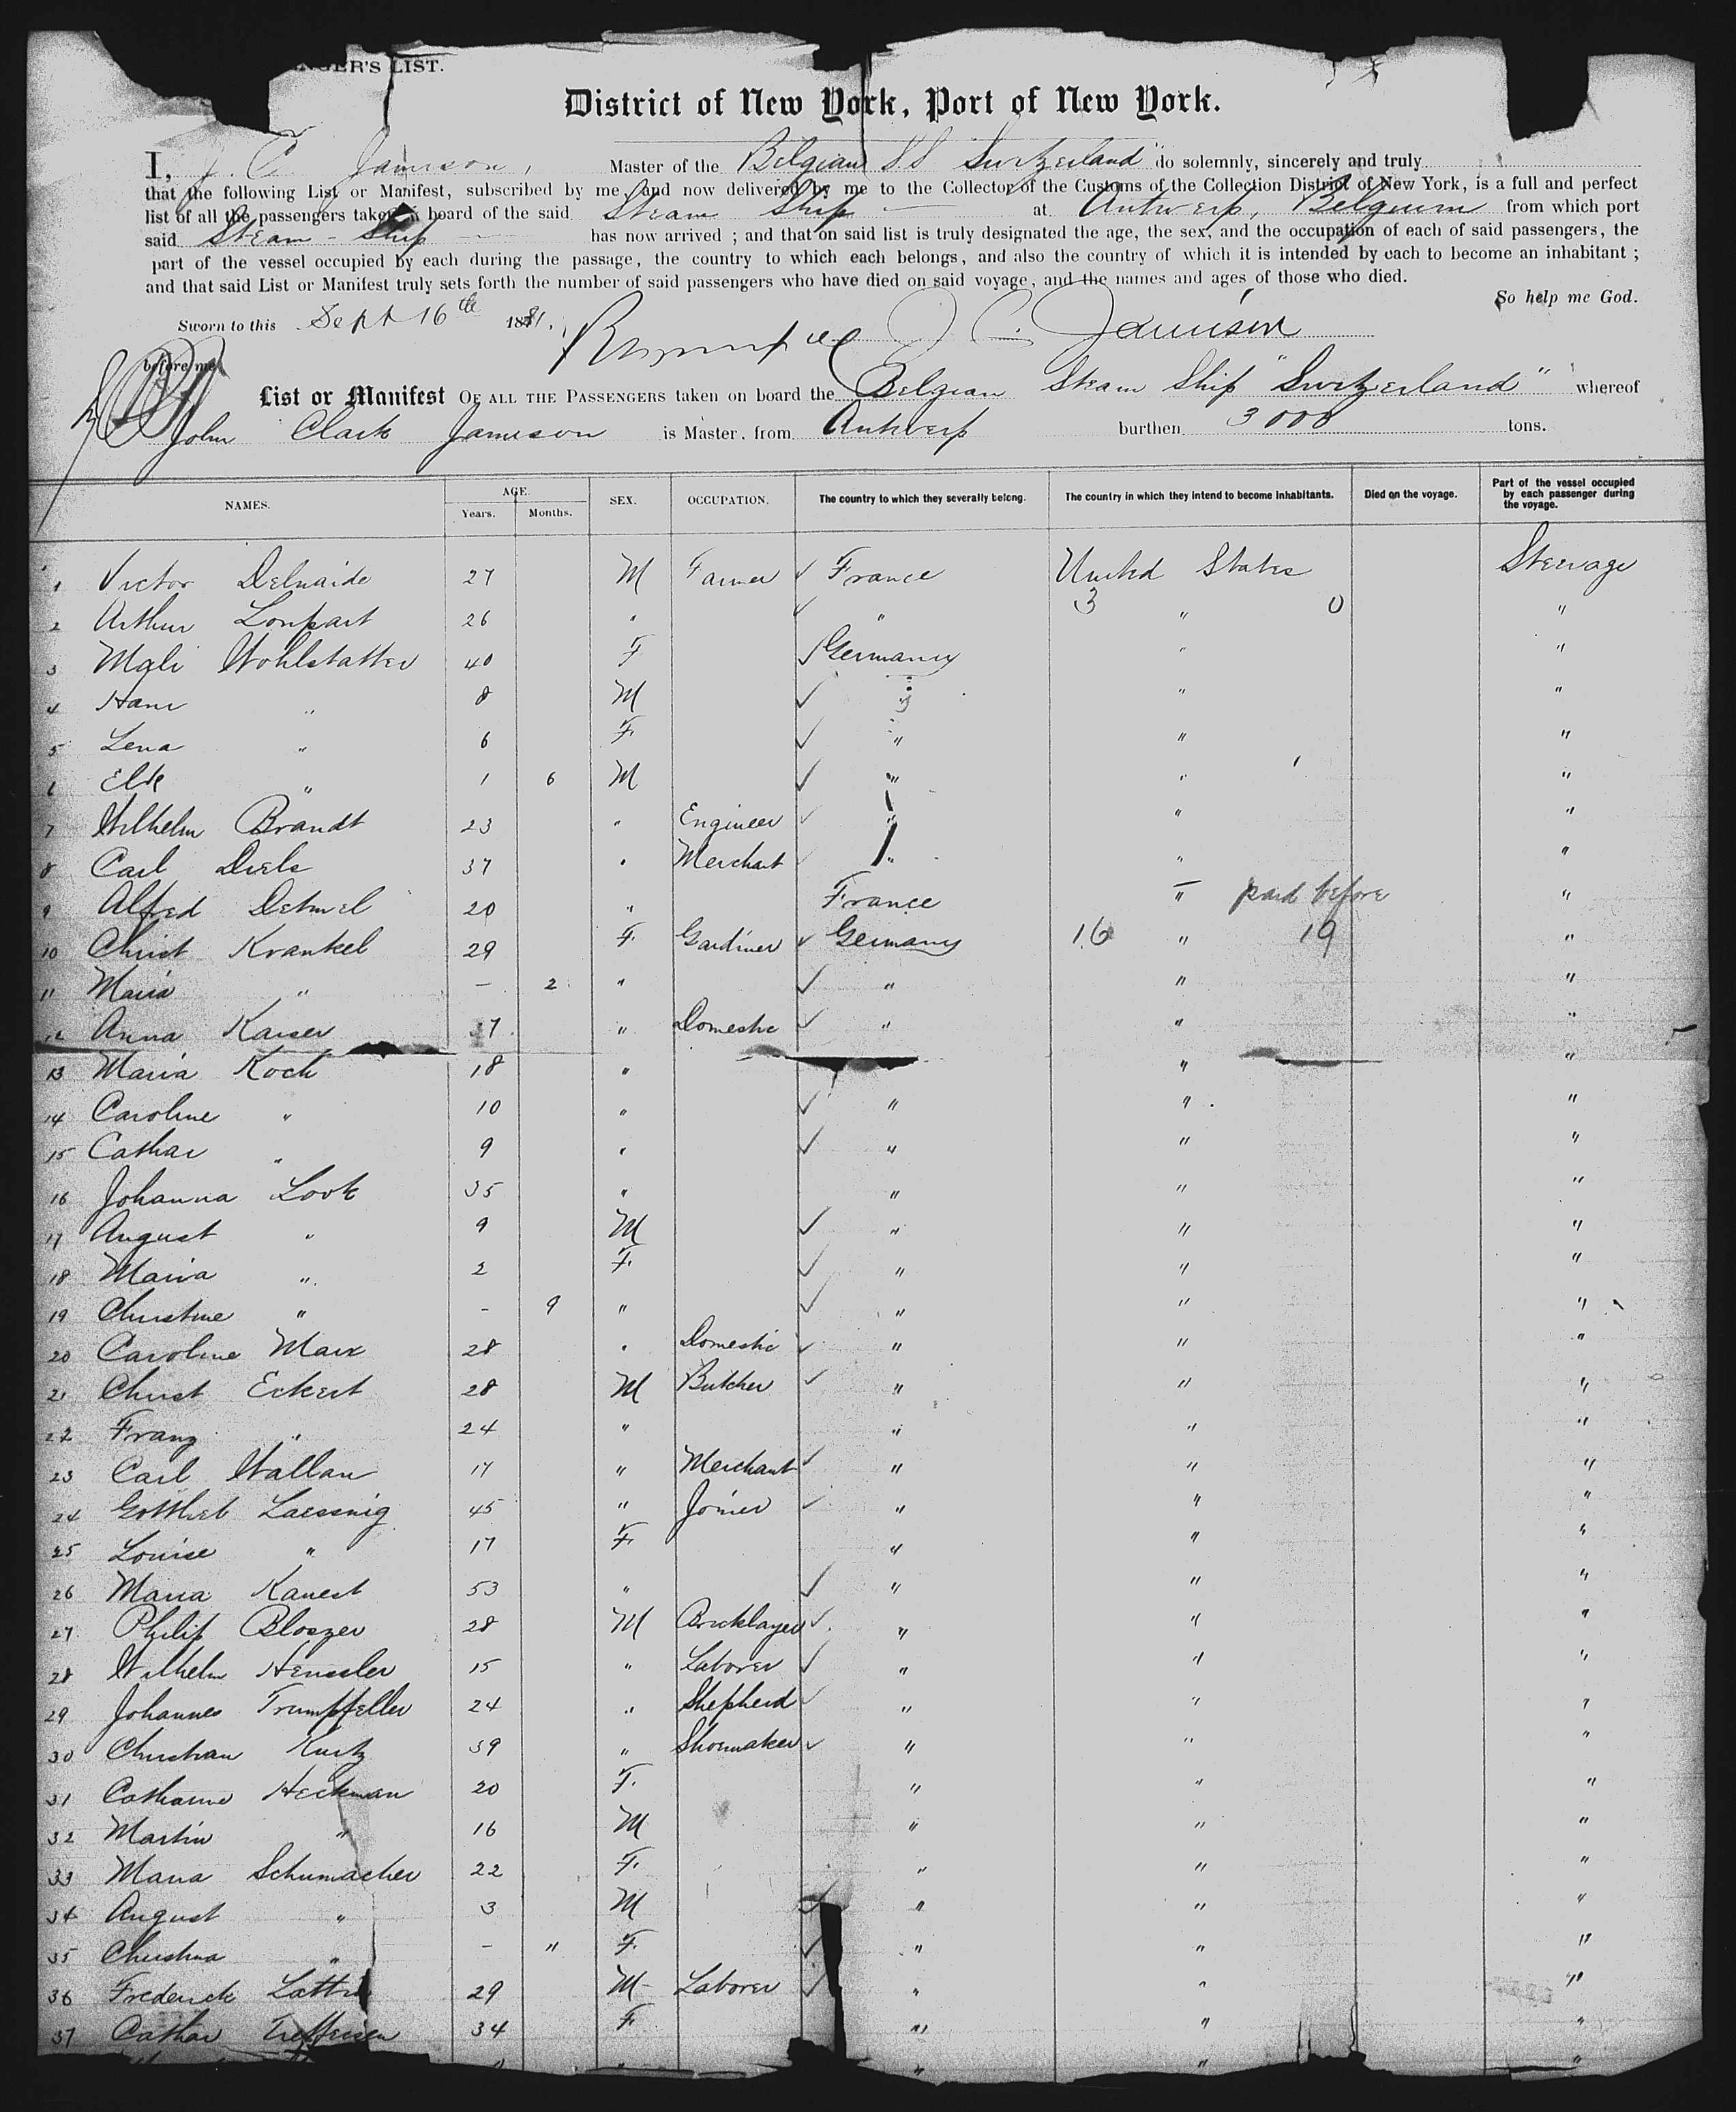 ER'S LIST.
District of New York, Port of New York.
I, J. C. Jamison, Master of the Belgian SS "Switzerland" do solemnly, sincerely and truly
that the following List or Manifest, subscribed by me, and now delivered by me to the Collector of the Customs of the Collection District of New York, is a full and perfect
list of all the passengers taken on board of the said Steam Ship at Antwerp, Belgium from which port
said Steam-Ship has now arrived ; and that on said list is truly designated the age, the sex, and the occupation of each of said passengers, the
part of the vessel occupied by each during the passage, the country to which each belongs, and also the country of which it is intended by each to become an inhabitant ;
and that said List or Manifest truly sets forth the number of said passengers who have died on said voyage, and the names and ages of those who died.
So help me God.
Sworn to this Sept 16th 1881. J C. Jamison
before me
List or Manifest OF ALL THE PASSENGERS taken on board the Belgian Steam Ship "Switzerland" whereof
John Clark Jameson is Master, from Antwerp burthen 3000 tons.
NAMES. AGE. Years. Months. SEX. OCCUPATION. The country to which they severally belong. The country in which they intend to become inhabitants. Died on the voyage. Part of the vessel occupied by each passenger during the voyage.
1 Victor Delnaide 27 M Farmer ✓ France United States Steerage
2 Arthur Lonpart 26 " ✓ " 3 " 0 "
3 Mali Wohlstatter 40 F ✓ Germany " "
4 Hans " 8 M ✓ " " "
5 Lena " 6 F. ✓ " " "
6 " 1 6 M ✓ " " "
7 Wilhelm Brandt 23 " Engineer ✓ " " "
8 Carl Diels 37 " Merchant ✓ " " "
9 Alfred Detmel 20 " France " paid before "
10 Christ Krankel 29 F. Gardiner ✓ Germany 16 " 19 "
11 Maria " – 2 " ✓ " " "
12 Anna Kaiser 37 " Domestic ✓ " " "
13 Maria Koch 18 " " "
14 Caroline " 10 " ✓ " " "
15 Cathar " 9 " ✓ " " "
16 Johanna Look 35 " " " "
17 August " 9 M ✓ " " "
18 Maria " 2 F. ✓ " " "
19 Christine " – 9 " ✓ " " "
20 Caroline Marx 28 " Domestic ✓ " " "
21 Christ Eckert 28 M Butcher ✓ " " "
22 Franz " 24 " " " "
23 Carl Wallau 17 " Merchant ✓ " " "
24 Gottlieb Laessnig 45 " Joiner ✓ " " "
25 Louise " 17 F. " " "
26 Maria Kanest 53 " ✓ " " "
27 Philip Bloszer 28 M Bricklayer ✓ " " "
28 Wilhelm Henssler 15 " Laborer ✓ " " "
29 Johannes Trumpfeller 24 " Shepherd ✓ " " "
30 Christian Kurtz 39 " Shoemaker ✓ " " "
31 Catharine Heckman 20 F. " " "
32 Martin " 16 M " " "
33 Maria Schumacher 22 F. " " "
34 August " 3 M ✓ " " "
35 Christina " – " F. ✓ " " "
36 Frederick 29 M Laborer ✓ " " "
37 Cathar 34 F. " " "
" " "